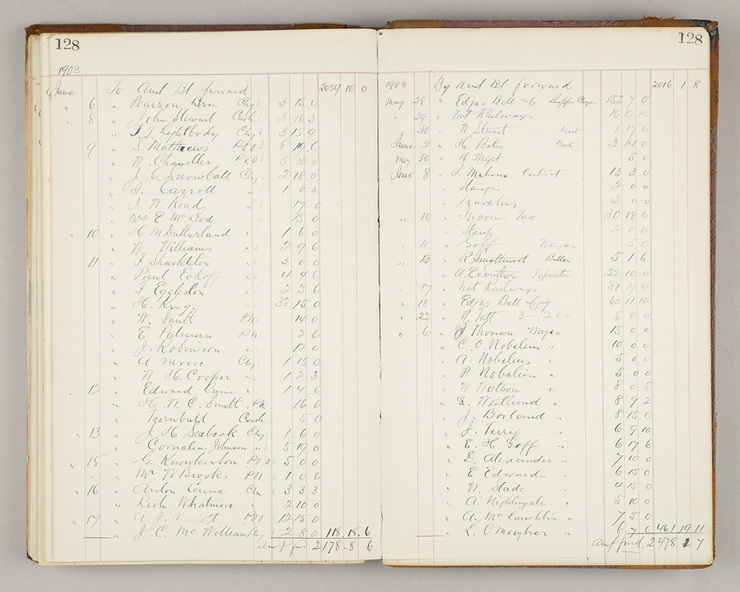 128
1903
June To Amt Bt forward 2059 10 0
" 6 " Pearson Bros Chq 3 15 0
" 8 " John Stewart Cash 3 16 3
" T. J. Rightbody Chq 3 15 9
9 " S. Matthews P.O.O 8 19 6
" W. Chandler P.O.O 5 10 6
" J. C. Snowball Chq 2 18 0
" J. Carroll " 1 0 0
" J. W. Read " 17 0
" Mrs E. McLeod 15 0
" 10 " H. M. Sutherland " 1 6 0
" W. Williams " 2 9 6
" 11 " F. Shackleton " 3 0 0
" Paul Eckoff " 4 4 6
" F. Eggleston " 2 2 6
" H. King " 33 15 0
" W. Smith P.N. 14 0
" E. Pulman P.N. 2 6
" J. Robinson " 17 0
" A. Moore Chq 1 15 0
" W. H. Cooper " 1 2 3
" 12 " Edward " 1 4 0
" H. W. C. Smith P.N. 16 6
" Turnbull Cash 5 0
" 13 " J. H. Seabrook Chq 1 6 0
" Cornelius Johnson " 5 19 0
" 15 " G. Knowles & Son P.O.O 5 0 0
" Mrs W. Brooks P.N. 1 0 6
" 16 " Anton Chq 3 3 3
" Rich Whatmore " 2 10 0
" 17 " P.O.O 12 15 0
" J. C. McWilliams Chq 2 8 0 118 18 6
Amt fwd 2178 8 6
128
1903 By Amt Bt forward 2016 1 8
May 28 " Edgar Bell & Co Chges 152 7 0
" 29 " Nat Railways 16 12 10
30 " W. Stuart Rent 1 7 6
June 2 " H. Bates Rent 2 4 0
May 30 " H. Wright 5 0
June 8 " J. Mahony Contract 13 3 0
" Stamps 2 0 0
" Travelling 3 0 0
" 10 " Income Tax 30 18 6
" Stamps 2 0 0
" 11 " Goff Wages 5 0
" 13 " R. Smethurst Butter 5 1 6
" A. Typewriter 22 10 0
" 17 " Nat Railways 31 9 4
" 18 " Edgar Bell Chq 60 11 10
" 22 " W. Tatt 5 0 0
" 6 " J. Thomson Wages 15 0 0
" C. O. Nobelius " 10 0 0
" A. Nobelius " 5 0 0
" P. Nobelius " 5 0 0
" W. Watson " 8 0 5
" E. Westlund " 8 9 2
" J. Borland " 8 15 0
" J. Perry " 6 9 10
" E. H. Goff " 6 17 6
" D. Alexander " 7 10 0
" E. Edwards " 6 15 0
" W. Slade " 4 15 0
" A. Nightingale " 5 10 0
" A. McLauchlin " 7 5 0
" L. O'Meagher " 6 7 0 461 19 11
Amt fwd 2478 1 7